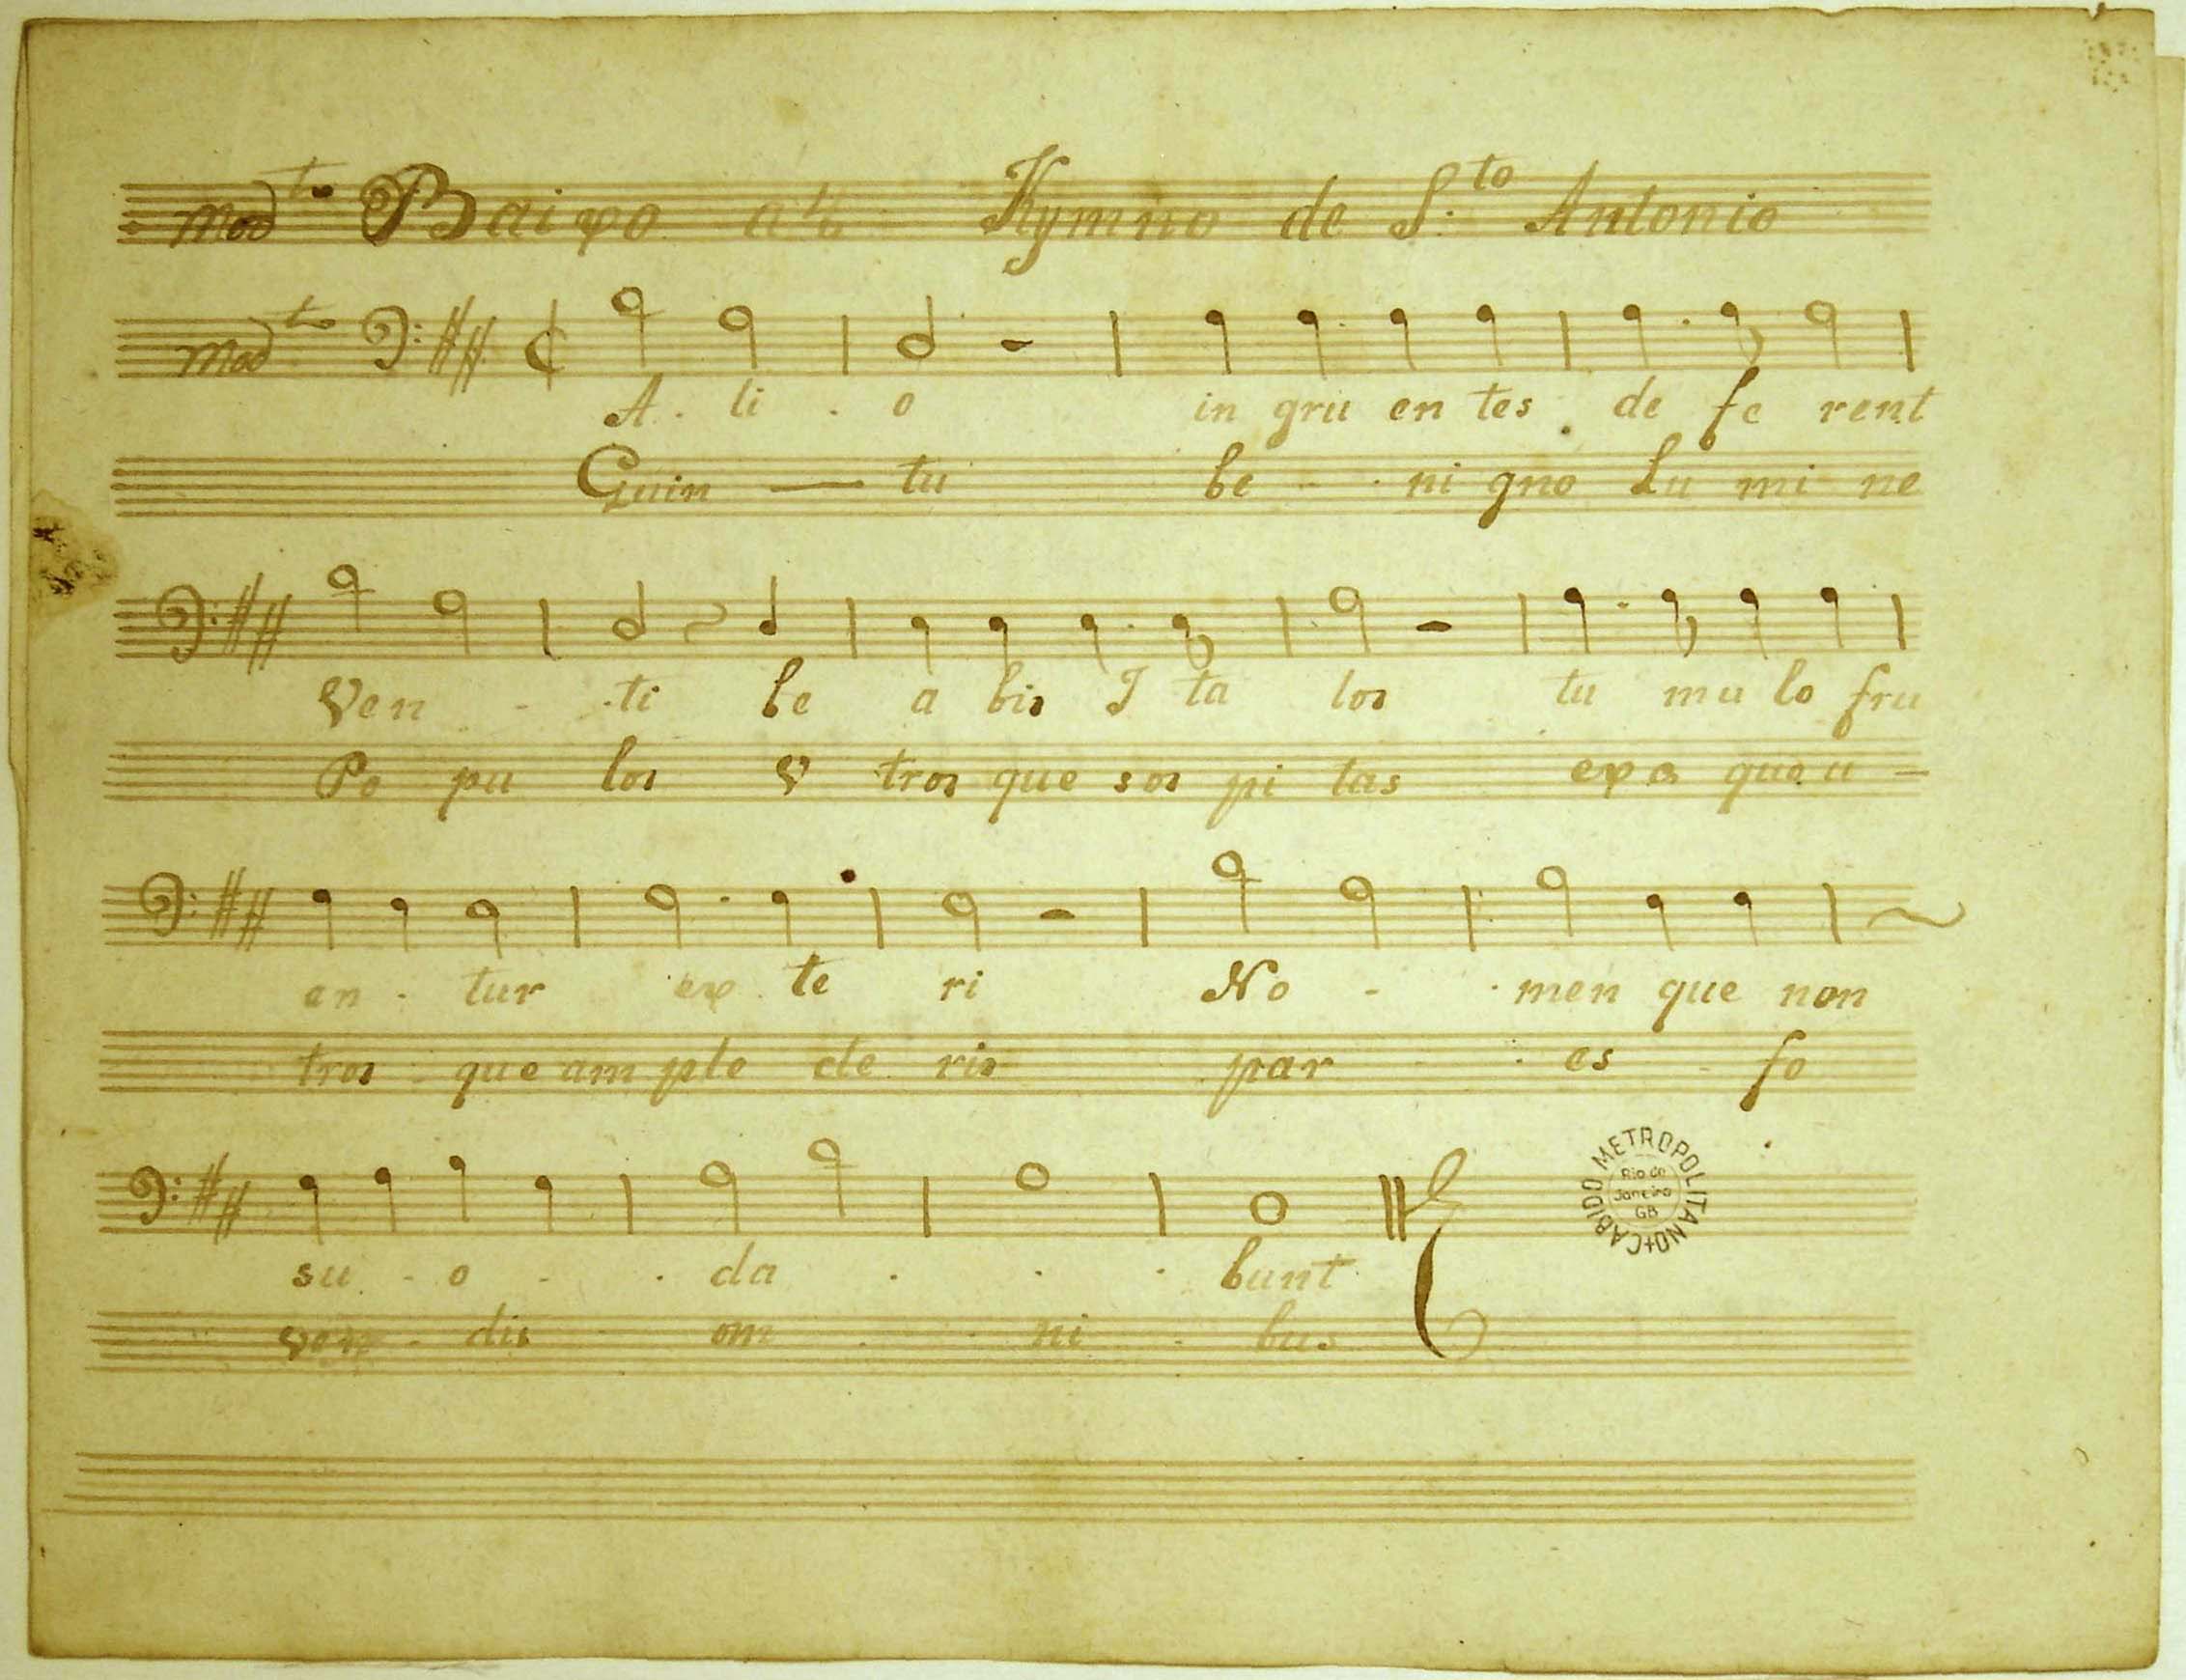 Mod.to Baixo a 4 Hymno de S.to Antonio
Mod.to
A. li . o in gru en tes de fe rent
Quin — tu be - ni gno Lu mi ne
Ven - ti be a bis I ta los tu mu lo fru
Po pu los V tros que sos pi tas ex a que u -
en - tur ex te ri No - men que non
tros que am ple cte ris par es fo
su - o - da bunt
ven - dis om ni bus
CABIDO METROPOLITANO
Rio de
Janeiro
GB